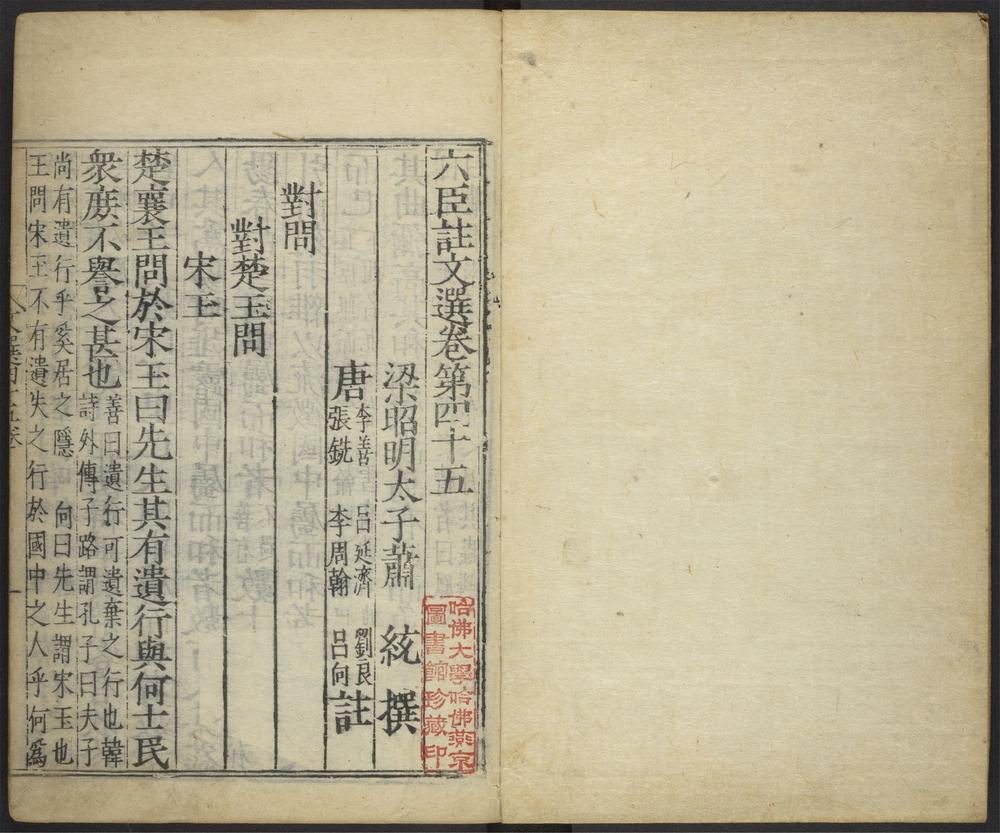 六臣註文選卷第四十五
梁昭明太子蕭統撰
唐
李善 呂延濟 劉良
張銑 李周翰 呂向
註
對問
對楚王問
宋玉
楚襄王問於宋玉曰先生其有遺行與何士民
衆庶不譽之甚也
善曰遺行可遺棄之行也韓
詩外傳子路謂孔子曰夫子
尚有遺行乎奚居之隱 向曰先生謂宋玉也
王問宋玉不有遺失之行於國中之人乎何爲
哈佛大學哈佛燕京
圖書館珍藏印